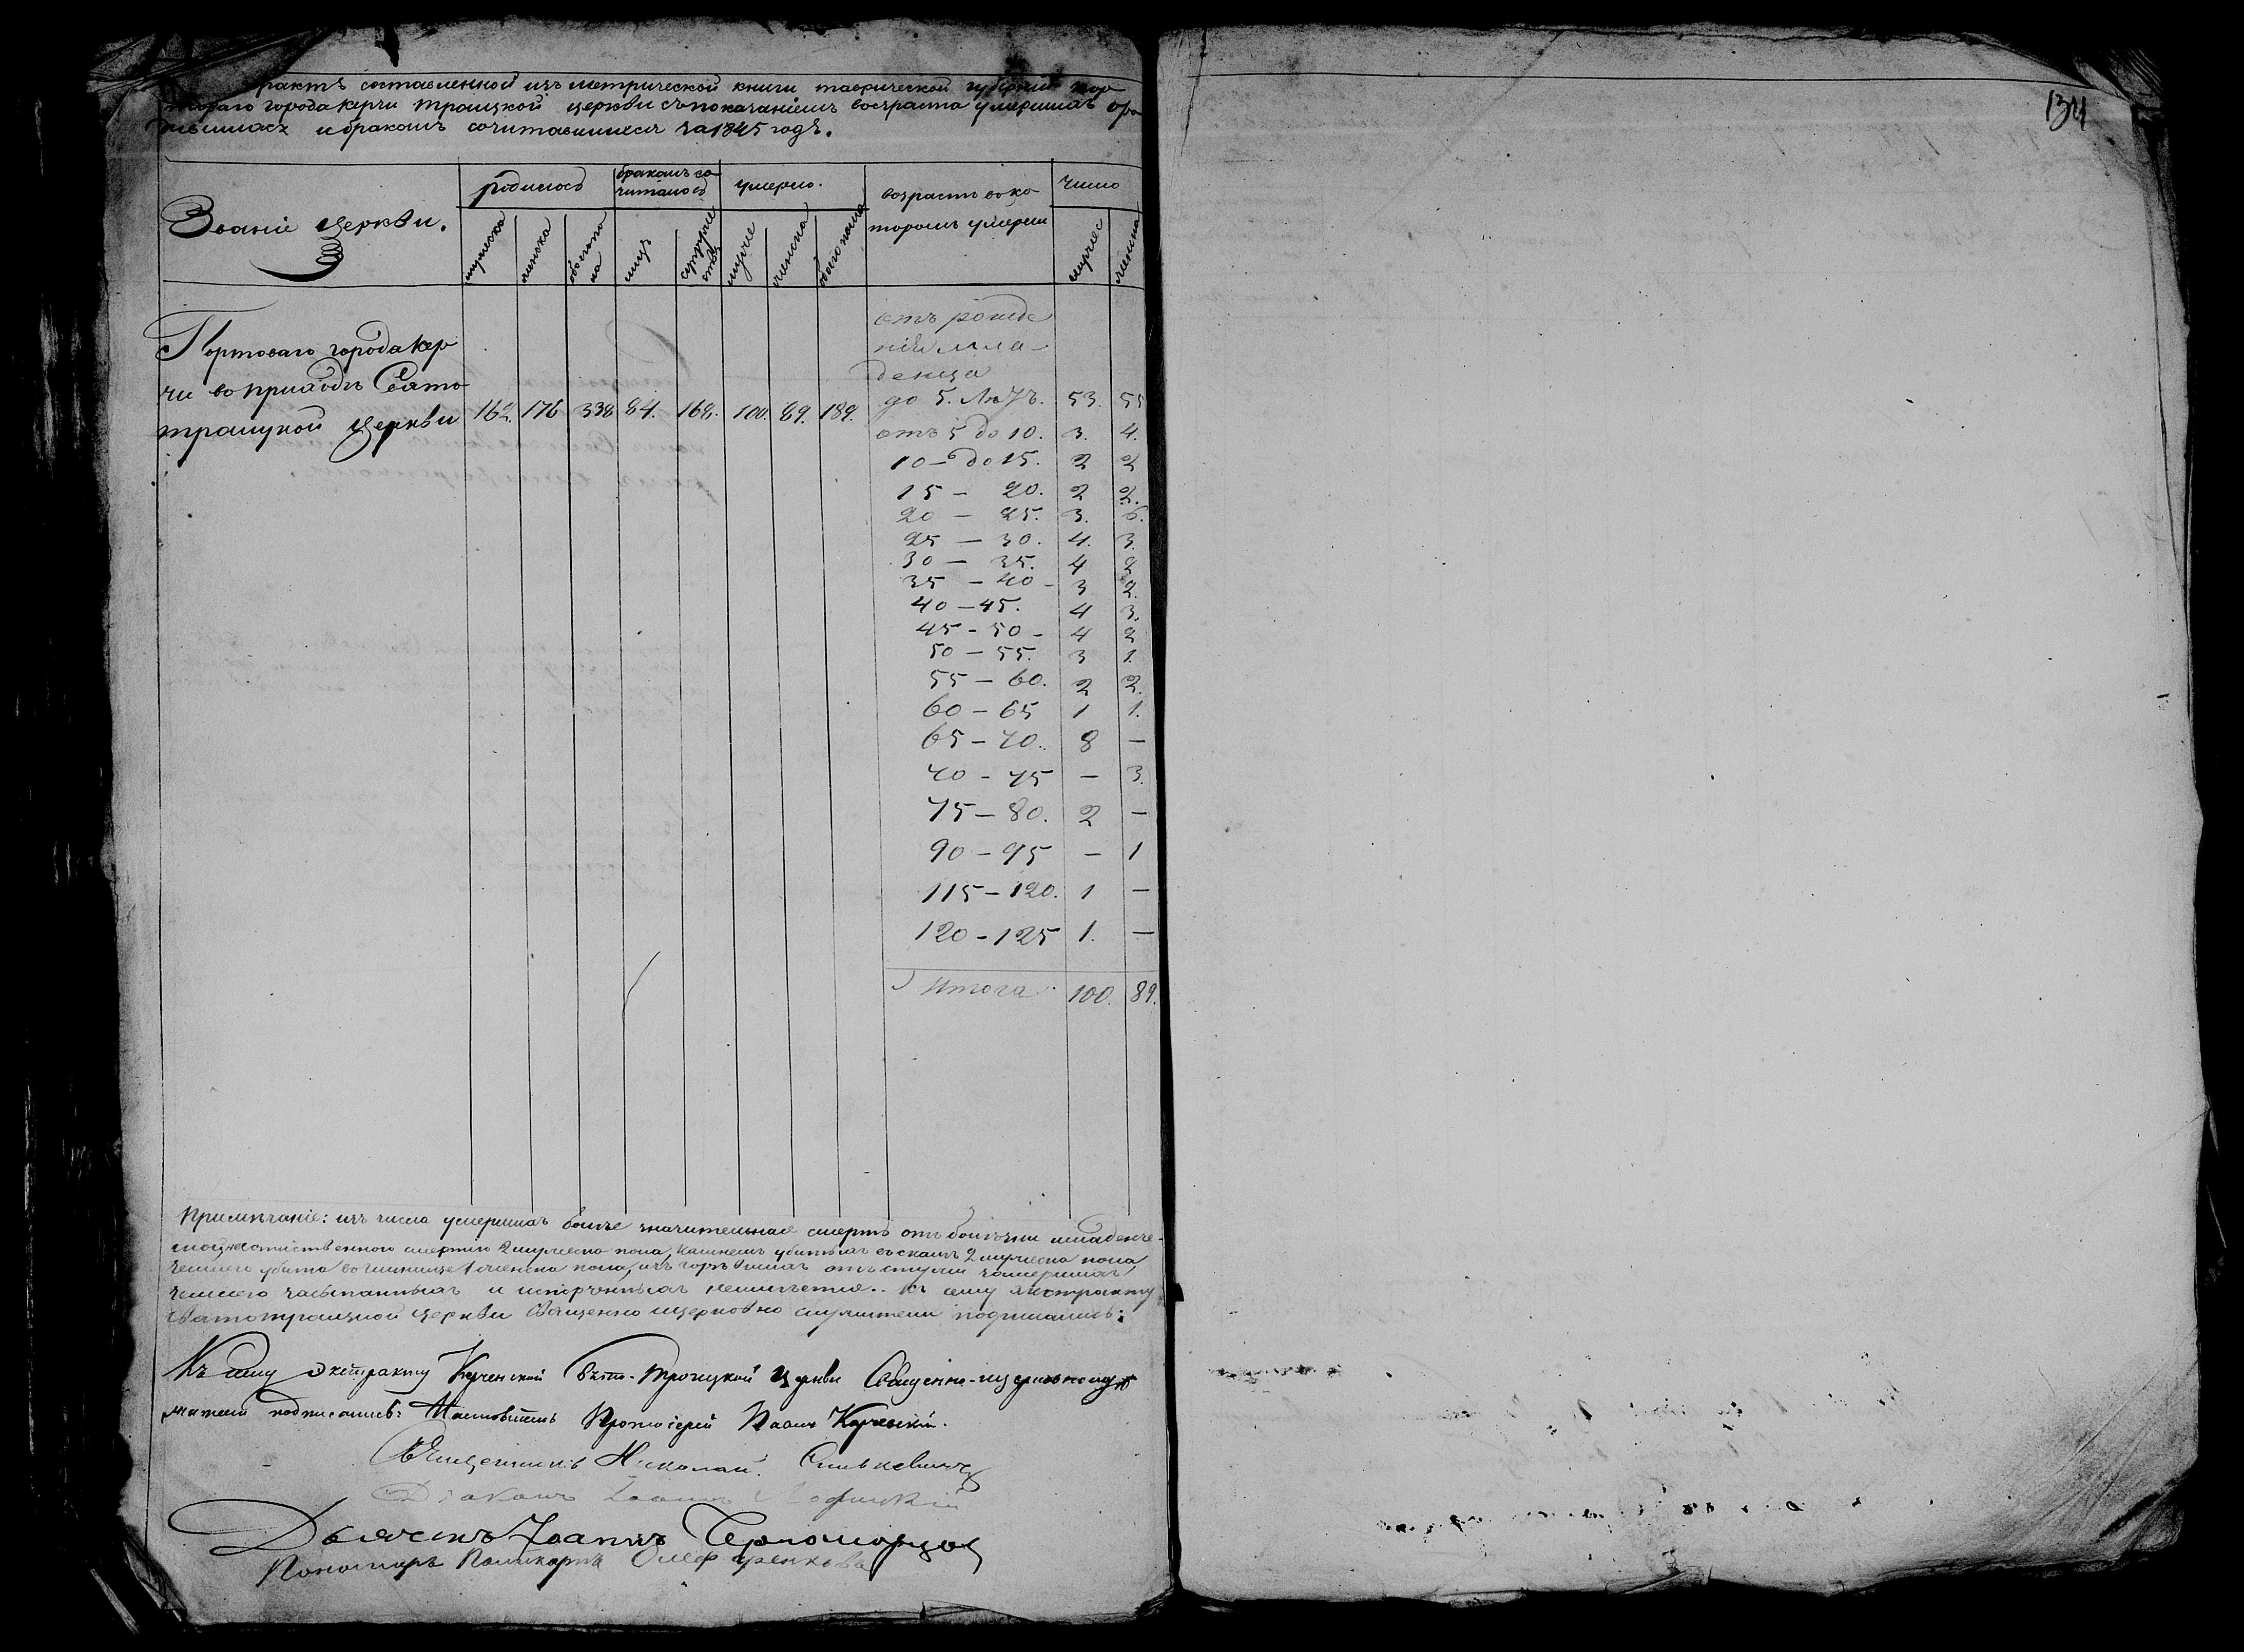 рактъ составленной изъ метрической книги таврической губерніи пор
товаго города керчи троицкой церкви съ показаніемъ возраста умершихъ
и бракомъ сочитавшихся за 1845 годъ.
134
Званіе церкви.
родилось
бракомъ со
читалось
умерло.
возрастъ въ ко
торомъ умерли
число
мужеска
женска
обоего по
ла
лицъ
супруже
ствъ
мужес
женска
обоего пола
мужес
женска
Портоваго города Кер
чи во приходѣ Свято
троицкой церкви
162. 176 338 84. 168. 100. 89. 189.
отъ рожде
нія мла-
денца
до 5. лѣтъ. 53. 55
отъ 5 до 10. 3. 4.
10 - до 15. 2 2
15 - 20. 2 2.
20 - 25. 3. 6.
25 - 30. 4. 3.
30 - 35. 4 2
35 - 40 - 3 2.
40 - 45. 4 3.
45 - 50 - 4 2
50 - 55. 3 1.
55 - 60. 2 2.
60 - 65 1 1.
65 - 70. 8 -
70 - 75 - 3.
75 - 80. 2 -
90 - 95 - 1
115 - 120. 1 -
120 - 125 1. -
Итого 100. 89.
Примѣчаніе: изъ числа умершихъ болѣе значительная смерть отъ болѣзни младенче-
смертію 2 мужеска пола, камнемъ убитыхъ 2 мужеска пола,
убита 1 женска пола, изъ отъ стужи замерзшихъ,
и неимѣется.. Къ сему экстракту
Святотроицкой церкви Священно и церковно служители подписались:
Къ сему экстракту Керченской Свято-Троицкой церкви Священно-церковнослу
жители подписались: Настоятель Протоіерей
Священникъ Николай
Діаконъ Іоаннъ
Дьячекъ Іоаннъ Черноморцов
Пономарь Поликарпъ